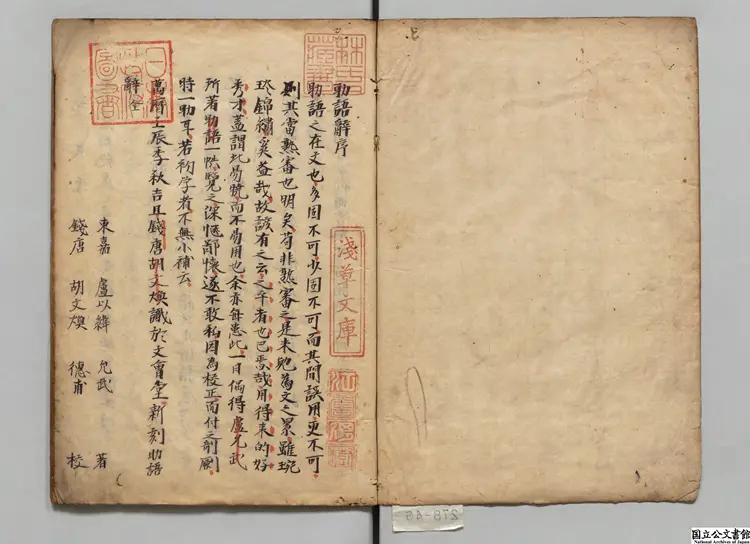 助語辭序
助語之在文也多固不可少固不可而其間誤用更不可
則其當熟審也明矣苟非熟審之是未免為文之累雖琬
琰錦繡奚益哉故諺有之云之乎者也已焉哉用得来的好
秀才蓋謂此易曉而不易用也余亦每患此一日偶得盧允武
所著助語一帙覽之深愜鄙懷遂不敢私因為校正而付之剞劂
特一助耳若初学者不無小補云
萬曆壬辰季秋吉旦錢唐胡文煥識於文會堂 新刻助語
辭全
東嘉 盧以緯 允武 著
錢唐 胡文煥 德甫 校
林氏藏書
淺草文庫
江雲渭樹
日本政府圖書
国立公文書館
National Archives of Japan